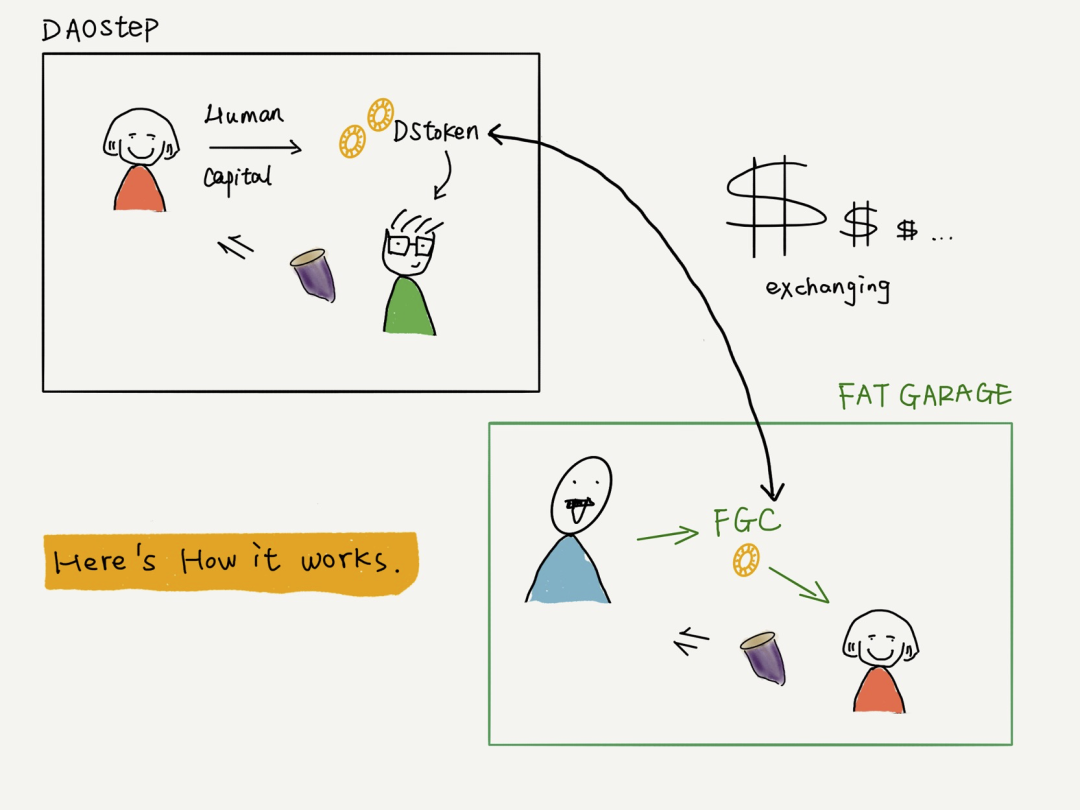 DAOstep
Human
Capital
DStoken
$ $ $ ...
exchanging
FAT GARAGE
FGC
Here's How it works.